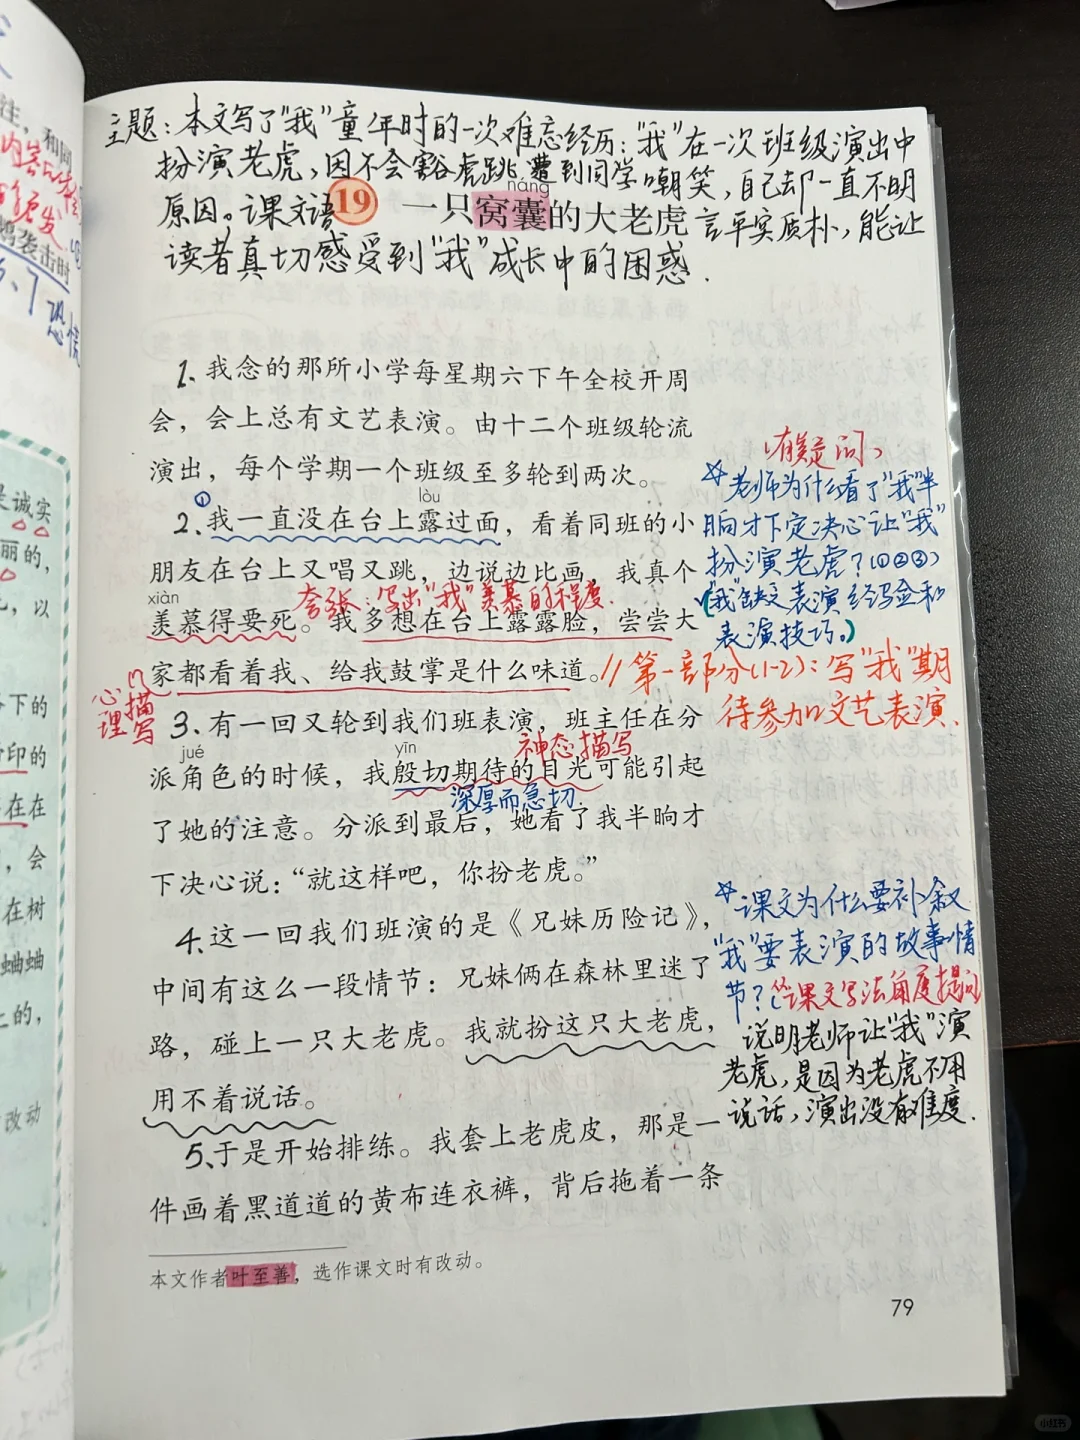 主题：本文写了“我”童年时的一次难忘经历：“我”在一次班级演出中
扮演老虎，因不会豁虎跳，遭到同学嘲笑，自己却一直不明
原因。课文语言平实质朴，能让
读者真切感受到“我”成长中的困惑.
náng
19 一只窝囊的大老虎
1、我念的那所小学每星期六下午全校开周
会，会上总有文艺表演。由十二个班级轮流
演出，每个学期一个班级至多轮到两次。
lòu
①
2、我一直没在台上露过面，看着同班的小
朋友在台上又唱又跳，边说边比画，我真个
xiàn
夸张：写出“我”羡慕的程度.
羡慕得要死。我多想在台上露露脸，尝尝大
家都看着我、给我鼓掌是什么味道。//
心理描写
第一部分(1-2)：写“我”期
待参加文艺表演.
有疑问
☆老师为什么看了“我”半
晌才下定决心让“我”
扮演老虎？(①②③)
(“我”缺乏表演经验和
表演技巧。)
3、有一回又轮到我们班表演，班主任在分
jué
yīn
神态描写
派角色的时候，我殷切期待的目光可能引起
深厚而急切.
了她的注意。分派到最后，她看了我半晌才
下决心说：“就这样吧，你扮老虎。”
4、这一回我们班演的是《兄妹历险记》，
中间有这么一段情节：兄妹俩在森林里迷了
路，碰上一只大老虎。我就扮这只大老虎，
用不着说话。
☆课文为什么要补叙
“我”要表演的故事情
节？(从课文写法角度提问)
说明老师让“我”演
老虎，是因为老虎不用
说话，演出没有难度.
5、于是开始排练。我套上老虎皮，那是一
件画着黑道道的黄布连衣裙，背后拖着一条
本文作者叶至善，选作课文时有改动。
79
注，和同
袭击时
恐慌
是诚实
丽的，
，以
下的
印的
在在
，会
在树
蛐蛐
上的，
改动
小红书